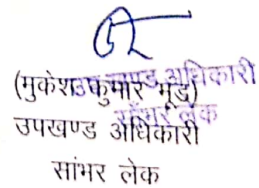 (मुकेश कुमार मूंड)
उपखण्ड अधिकारी
सांभर लेक
उपखण्ड अधिकारी
साँभर लेक